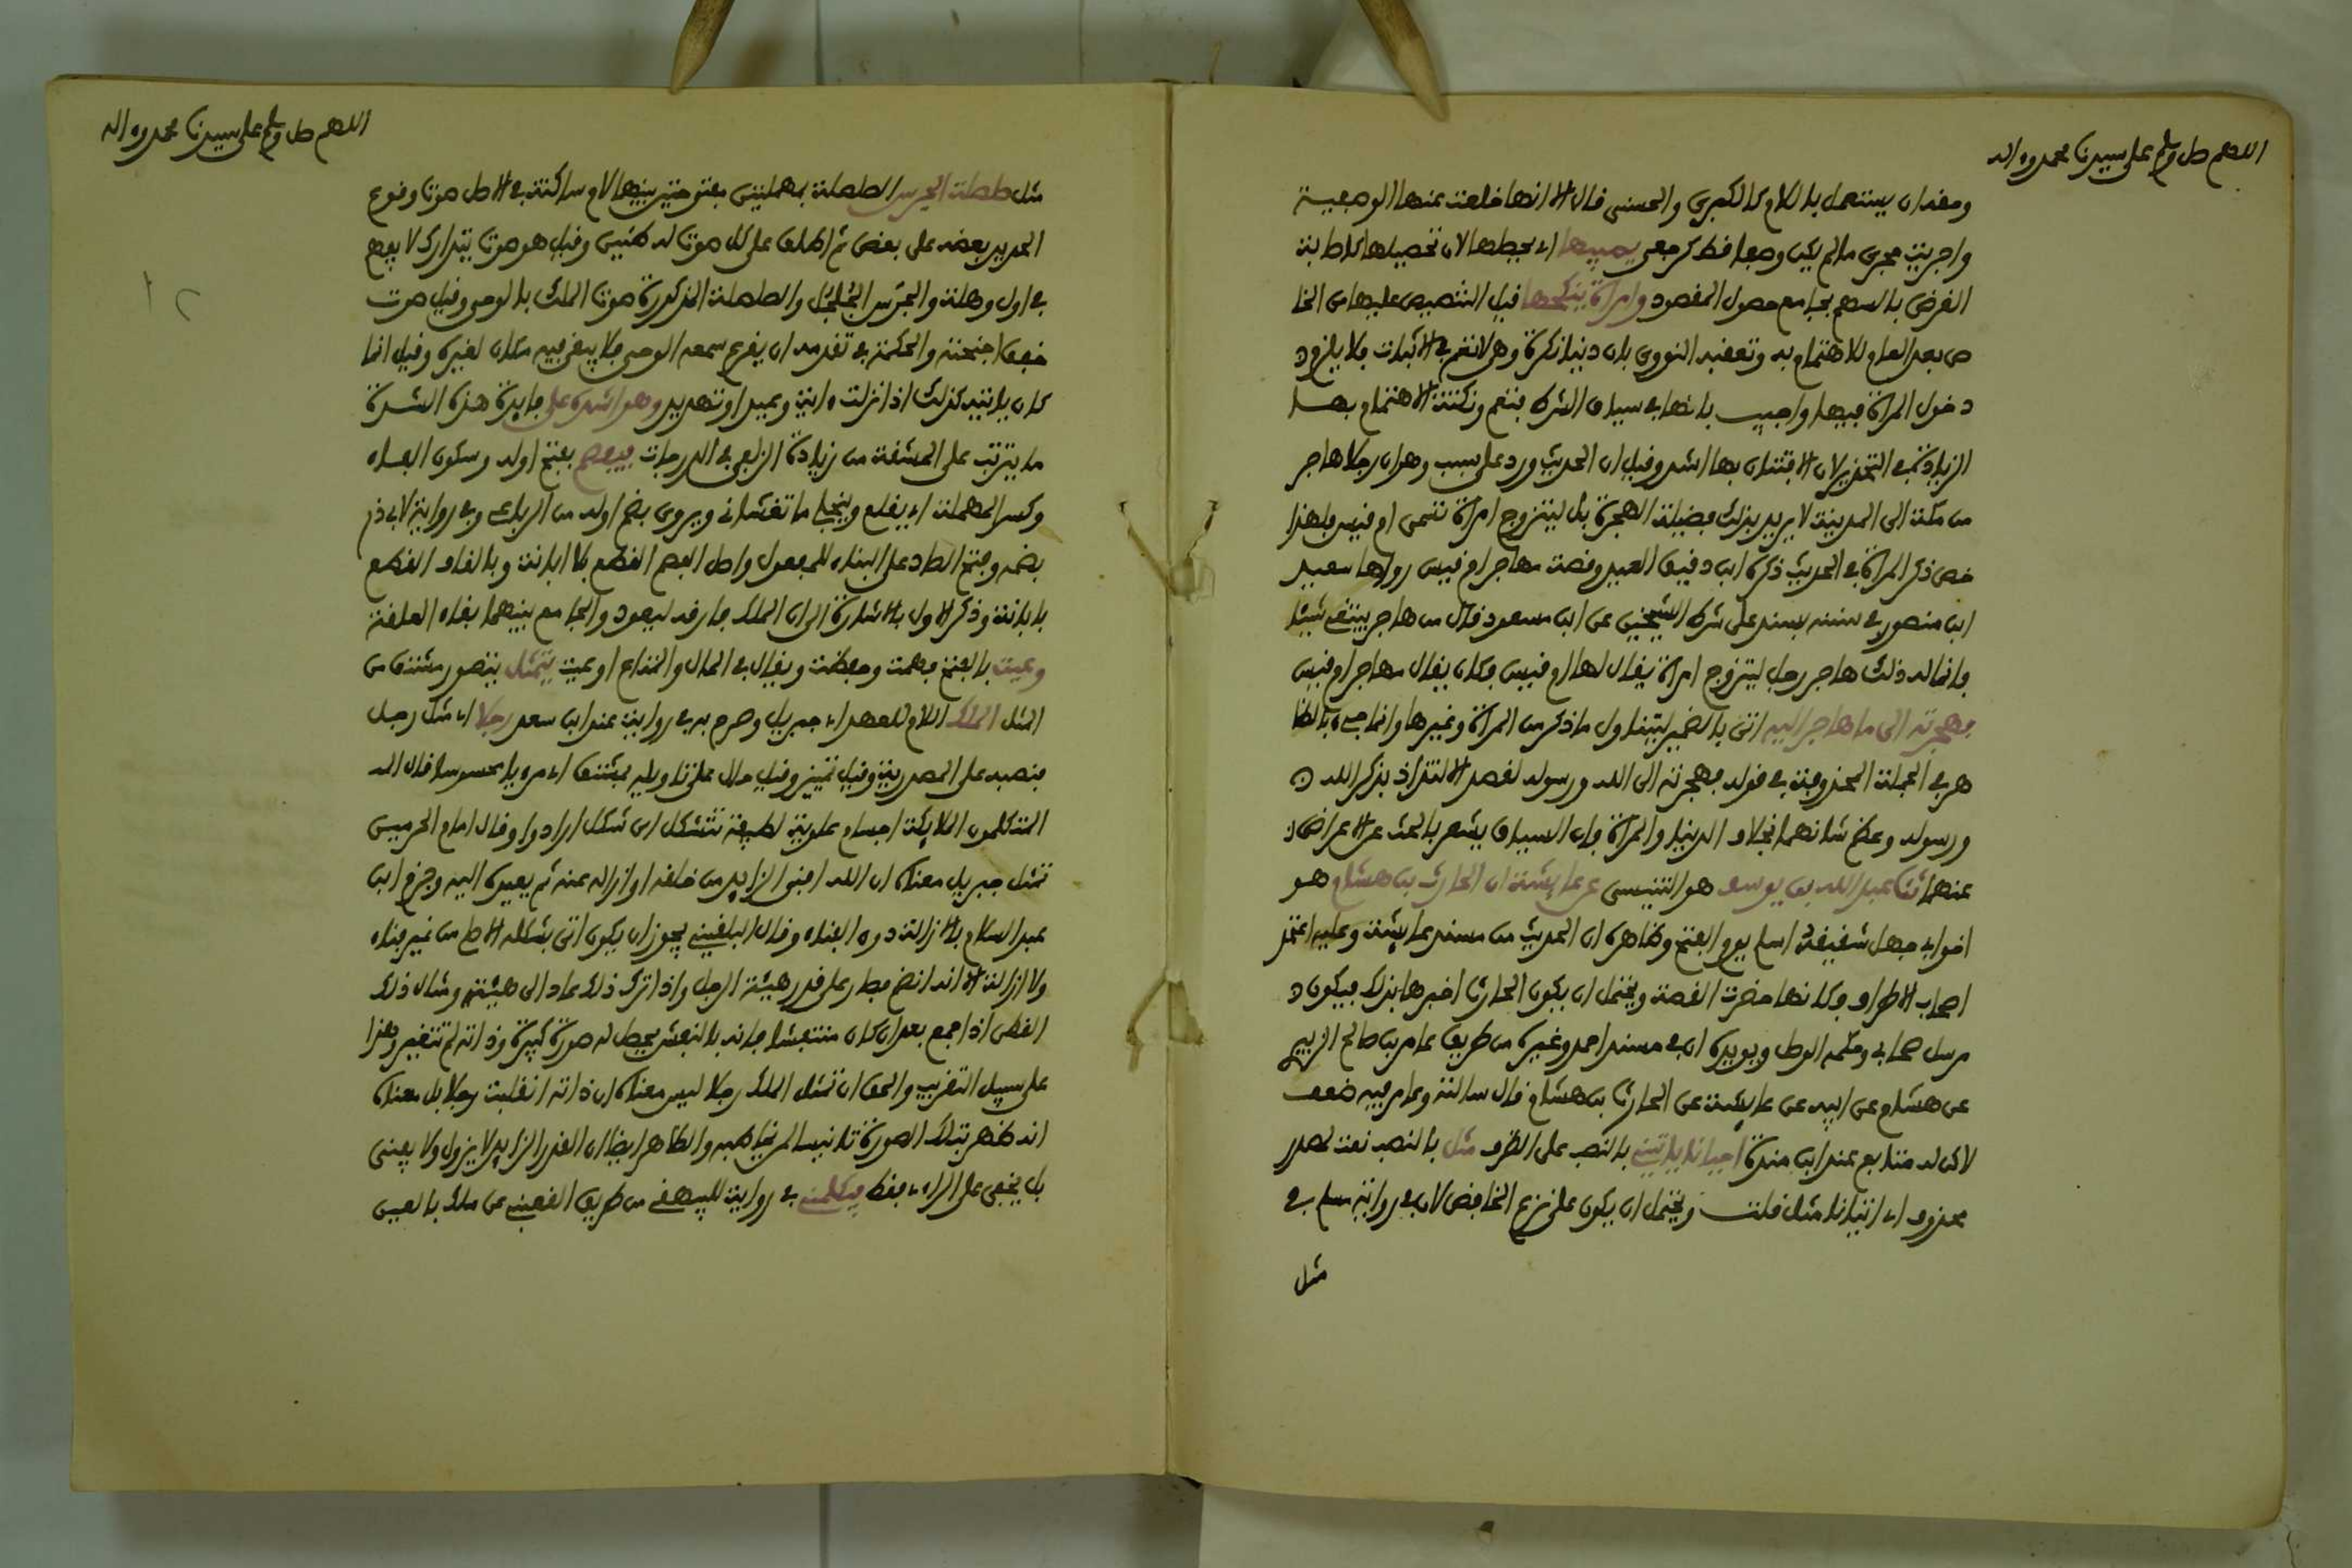 اللهم صل وسلم على سيدنا محمد وءاله
وحقه ان يستعمل باللام كالكبرى والحسنى قال الا انها خلعت عنها الوصفية
واجريت مجرى ما لم يكن وصفا فط كرجعى يصيبها اي يحصلها لان تحصيلها كاصابة
الغرض بالسهم بجامع حصول المقصود وامراة ينكحها قيل التنصيص عليها من الخا
ص بعد العام للاهتمام به وتعقبه النووي بان دنيا نكرة وهي لا تعم في الاثبات فلا يلزم د
خول المراة فيها واجيب بانها في سياق الشرط فتعم ونكتة الاهتمام بها
الزيادة في التحذير لان الافتتان بها اشد وقيل ان الحديث ورد على سبب وهو ان رجلا هاجر
من مكة الى المدينة لا يريد بذلك فضيلة الهجرة بل ليتزوج امراة تسمى ام قيس فلهذا
خص ذكر المراة في الحديث ذكره ابن دقيق العيد وقصة مهاجر ام قيس رواها سعيد
ابن منصور في سننه بسند على شرط الشيخين عن ابن مسعود قال من هاجر يبتغي شيئا
فانما له ذلك هاجر رجل ليتزوج امراة يقال لها ام قيس فكان يقال مهاجر ام قيس
فهجرته الى ما هاجر اليه اتى بالضمير ليتناول ما ذكر من المراة وغيرها وانما جيء بالظا
هر في الجملة المحذوفة في قوله فهجرته الى الله ورسوله لقصد الالتذاذ بذكر الله
ورسوله وعظم شانهما بخلاف الدنيا والمراة فان السياق يشعر بالحث على الاعراض
عنهما ثنا عبد الله بن يوسف هو التنيسي عن عايشة ان الحارث بن هشام هو
اخو ابي جهل شقيقه اسلم يوم الفتح وظاهره ان الحديث من مسند عايشة وعليه اعتمد
اصحاب الاطراف فكانها حضرت القصة ويحتمل ان يكون الحارث اخبرها بذلك فيكون
مرسل صحابي وحكمه الوصل ويويده ان في مسند احمد وغيره من طريق عامر بن صالح الزبيري
عن هشام عن ابيه عن عايشة عن الحارث بن هشام قال سالت وعامر فيه ضعف
لاكن له متابع عند ابن منده احيانا ياتيني بالنصب على الظرف مثل بالنصب نعت لمصدر
محذوف اي اتيانا مثل قلت ويحتمل ان يكون على نزع الخافض لان في رواية مسلم في
مثل
اللهم صل وسلم على سيدنا محمد وءاله
مثل صلصلة الجرس الصلصلة بمهملتين مفتوحتين بينهما لام ساكنة في الاصل صوت وقوع
الحديد بعضه على بعض ثم اطلق على كل صوت له طنين وقيل هو صوت يتدارك لا يفهم
في اول وهلة والجرس الجلجل والصلصلة المذكورة صوت الملك بالوحي وقيل صوت
خفق اجنحته والحكمة في تقدمه ان يقرع سمعه الوحي فلا يبقى فيه مكان لغيره وقيل انما
كان ياتيه كذلك اذا نزلت ءاية وعيد او تهديد وهو اشده علي فايدة هذه الشدة
ما يترتب على المشقة من زيادة الزلفى في الدرجات فيفصم بفتح اوله وسكون الفاء
وكسر المهملة اي يقلع وينجلي ما تغشاني ويروى بضم اوله من الرباعي وفي رواية لابي ذر
بضمه وفتح الصاد على البناء للمفعول واصل الفصم القطع بلا ابانة وبالقاف القطع
بابانة وذكر الاول بالاشارة الى ان الملك فارقه ليعود والجامع بينهما بقاء العلقة
وعيت بالفتح فهمت وحفظت ويقال في المال والمتاع اوعيت يتمثل يتصور مشتق من
المثل الملك اللام للعهد اي جبريل وصرح به في رواية عند ابن سعد رجلا اي مثل رجل
فنصبه على المصدرية وقيل تمييز وقيل حال على تاويله بمشتق اي مرءيا محسوسا قال
المتكلمون الملايكة اجسام علوية لطيفة تتشكل اي شكل ارادوا وقال امام الحرمين
تمثل جبريل معناه ان الله افنى الزايد من خلقه او ازاله عنه ثم يعيده اليه وجزم ابن
عبد السلام بالازالة دون الفناء وقال البلقيني يجوز ان يكون اتى بشكله الاصلي من غير فناء
ولا ازالة الا انه انضم فصار على قدر هيئة الرجل واذا ترك ذلك عاد الى هيئته ومثال ذلك
القطن اذا جمع بعد ان كان منتفشا فانه بالنفش يحصل له صورة كبيرة وذاته لم تتغير وهذا
على سبيل التقريب والحق ان تمثل الملك رجلا ليس معناه ان ذاته انقلبت رجلا بل معناه
انه ظهر بتلك الصورة تانيسا لمن يخاطبه والظاهر ايضا ان القدر الزايد لا يزول ولا يفنى
بل يخفى على الراءي فقط فيكلمني في رواية للبيهقي من طريق القعنبي عن ملك بالعين
١٢